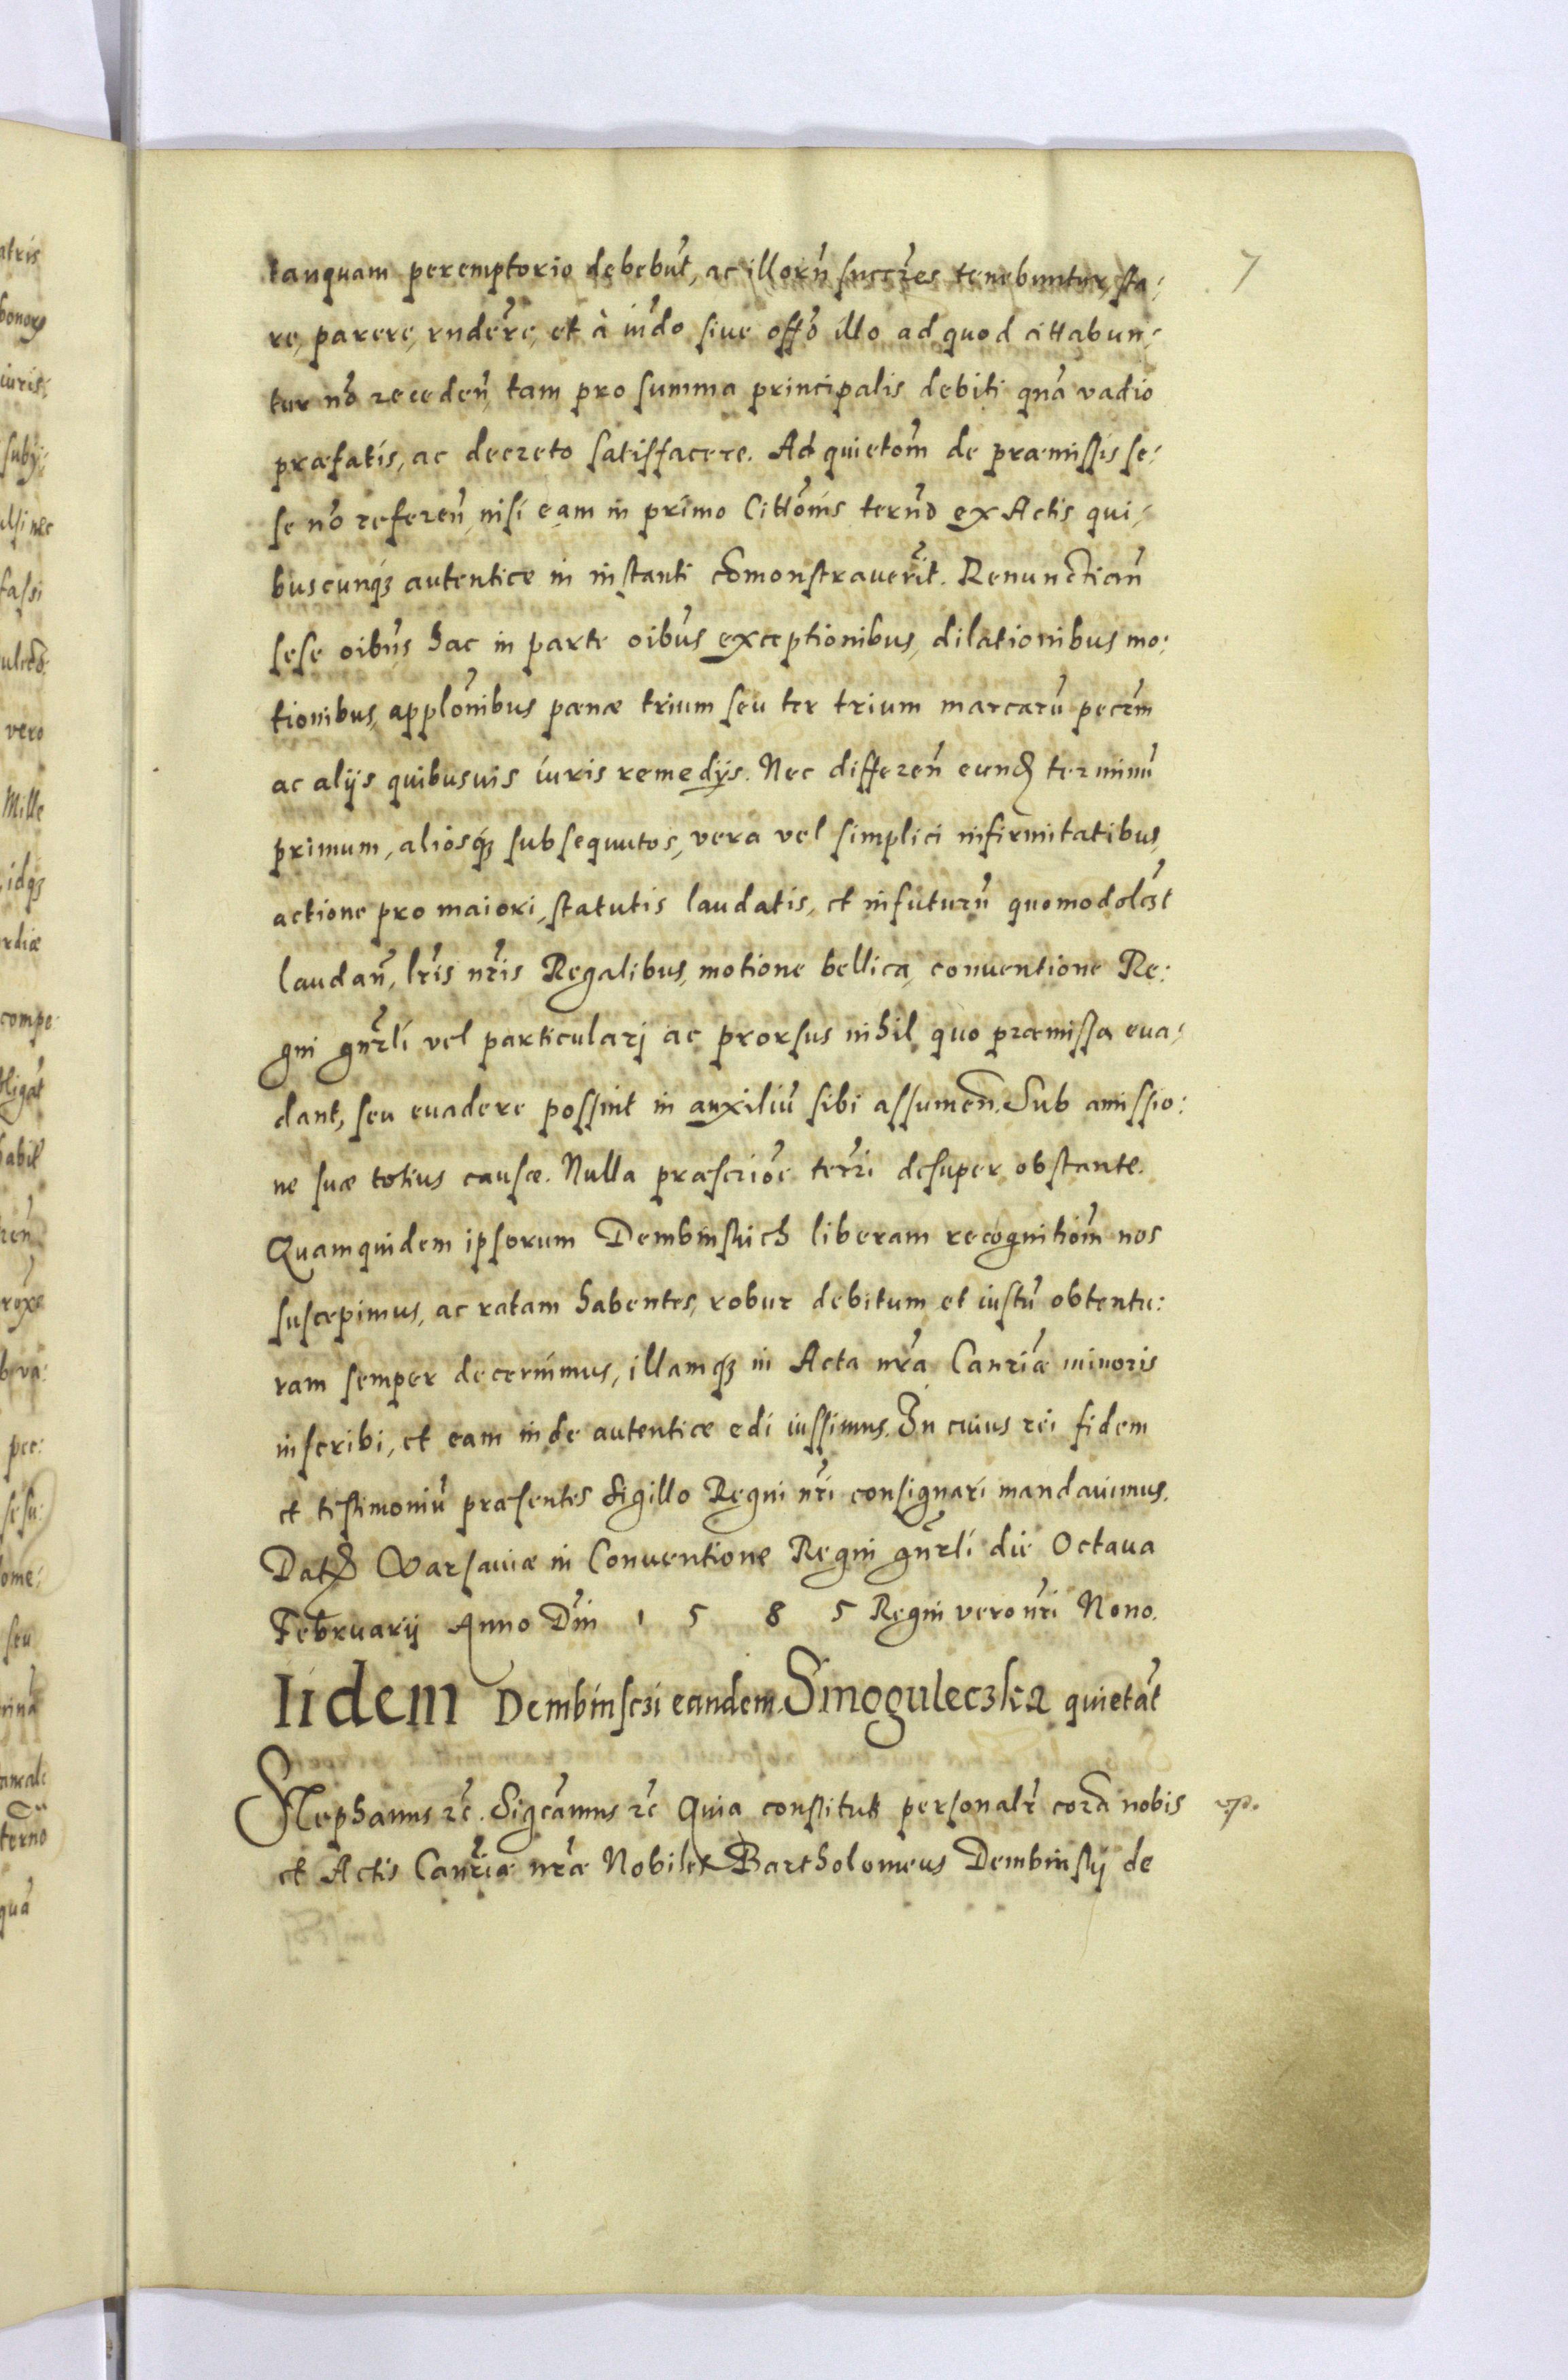 7
tanquam peremptorio debebūt, ac illorū succres tenebuntur, sta:
re, parere, rndere, et à iūdo siue offō illo ad quod cittabun:
tur nō receden̄, tam pro summa principalis debiti quā vadio
præfatis, ac decreto satisfacere. Ad quietōm de præmissis se:
se nō referen̄, nisi eam in primo Cittōnis ternō ex Actis qui:
buscunq3 autentice in instanti cōmonstraverīt. Renunctian̄
sese oibus hac in parte oibus exceptionibus, dilationibus mo:
tionibus, applōnibus pœnæ trium seu ter trium marcarū pecrm
ac alijs quibusuis iuris remedijs. Nec differen̄ eund terminū
primum, aliosq3 subsequutos, vera vel simplici infirmitatibus,
actione pro maiori, statutis laudatis, et in futurū quomodolzt
laudan̄, lris nris Regalibus, motione bellica, conuentione Re:
gni gnrli vel particulari ac prorsus nihil quo præmissa eua:
dant, seu euadere possint in auxiliū sibi assumen̄. Sub amissio:
ne suæ totius causæ. Nulla præscriōe terri desuper obstante.
Quamquidem ipsorum Dembinskich liberam recognitiōm nos
suscepimus, ac ratam habentes, robur debitum et iustū obtentu:
ram semper decernimus, illamq3 in Acta nra Canriæ minoris
inscribi, et eam inde autentice edi iussimus. In cuius rei fidem
et testimoniū præsentes Sigillo Regni nri consignari mandauimus.
Dat Warsauiæ in Conuentione Regni gnrli die Octaua
Februarij Anno Dni 1 5 8 5 Regni vero nri Nono.
Iidem Dembinsczi eandem Smoguleczka quietāt
Stephanus rc. Sigcamus rc Quia constituti personalr corā nobis
et Actis Canriæ nræ Nobiles Bartholomeus Dembinskj de